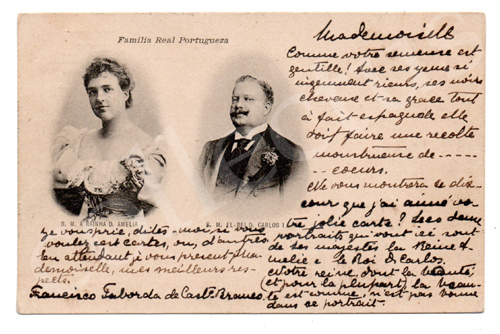 Familia Real Portugueza
Mademoiselle
Comme votre semeuse est
gentille! Avec ses yeux si
rieurs, ses noirs
cheveux et sa grace tout
à fait espagnole elle
doit faire une recolte
monstrueuse de - - - - -
- - - - - coeurs.
Elle vous montrera le dis-
cours que j'ai
S. M. A RAINHA D. AMELIA
S. M. EL-REI D. CARLOS I
tre jolie carte! Les deux
portraits qui sont ici sont
de ses majestés la Reine A-
melie et le Roi D. Carlos.
Notre reine, dont la beauté
(et pour la plupart) la beau-
té est connue, n'est pas bonne
dans ce portrait.
Je vous prie, dites-moi, si vous
voulez cert cartes, ou, d'autres,
En attendant je vous present Ma-
demoiselle, mes meilleurs res-
pects.
Francisco Taborda de Castº Branco.